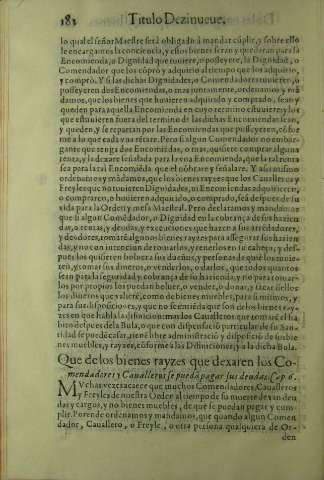 182 Titulo Dezinueue,
lo qual el señor Maestre será obligado à mandar cũplir, y sobre esto
le encargamos la conciencia, y estos bienes seran y quedaran para la
Encomienda, o Dignidad que tuuiere, o posseyere, la Dignidad, o
Comendador que los cõprò y adquirio al tiempo que los adquirio,
y comprò. Y si las dichas Dignidades, o Comendadores tuuieren, o
posseyeren dos Encomiendas, o mas juntamente, ordenamos y mã
damos, que los bienes que huuieren adquirido y comprado, sean y
queden para aquella Encomienda en cuyo termino estuuieren y los
que estuuieren fuera del termino de las dichas Encomiendas sean,
y queden, y se repartan por las Encomiendas que posseyeren, cõfor
me a lo que cada vna rẽtare. Pero si algun Comendador no embar-
gante que tenga dos Encomiẽdas, o mas, quisiere comprar alguna
renta, y la dexare señalada para la vna Encomienda, que la tal renta
sea para la tal Encomiẽda que el nõbrare y señalare. Y assi mismo
ordenamos y mãdamos, que los bienes rayzes que los Caualleros y
Freyles que no tuuieren Dignidades, ni Encomiendas adquirieren,
o compraren, o huuieren adquirido, o comprado, sea despues de su
vida para la Orden y mesa Maestral. Pero declaramos y mandamos
que si algun Comẽdador, o Dignidad en la cobrança de sus hazien
das, o rentas, y deudas, y execuciones que hazen a sus arrẽdadores,
y deudores, tomarẽ algunos bienes rayzes para assegurar sus hazien
das, y no con intencion de tomarlos, y tenerlos en su cabeça, y des-
pues los quisieren boluer a sus dueños, y personas de quiẽ los tomaron,
y tomar sus dineros, o venderlos, o darlos, que todos quantos
sean para la seguridad y cobrança de su hazienda, y no para tomar-
los por propios los puedan boluer, o vender, o donar, y sacar dellos
los dineros que valierẽ, como de bienes muebles, para si mismos, y
para su disposicion, y que no se entiẽda que son de los bienes ray-
zes en que habla la difinicion: mas los Caualleros que tomarẽ el ha
bito despues dela Bula, o que con dispensaciõ particular de su San-
tidad se puedẽ casar, tienẽ libre administraciõ y disposiciõ de sus bie
nes muebles, y rayzes, cõforme a las Difiniciones, y a la dicha Bula.
Que de los bienes rayzes que dexaren los Co-
mendadores y Caualleros se puedã pagar sus deudas. Cap. 6.
MVchas vezes acaece que muchos Comendadores, Caualleros
y Freyles de nuestra Orden al tiempo de su muerte dexan deu
das y cargos, y no bienes muebles, de que se puedan pagar y cum-
plir. Porende ordenamos y mandamos, que quando algun Comen
dador, Cauallero, o Freyle, o otra persona qualquiera de Or-
den